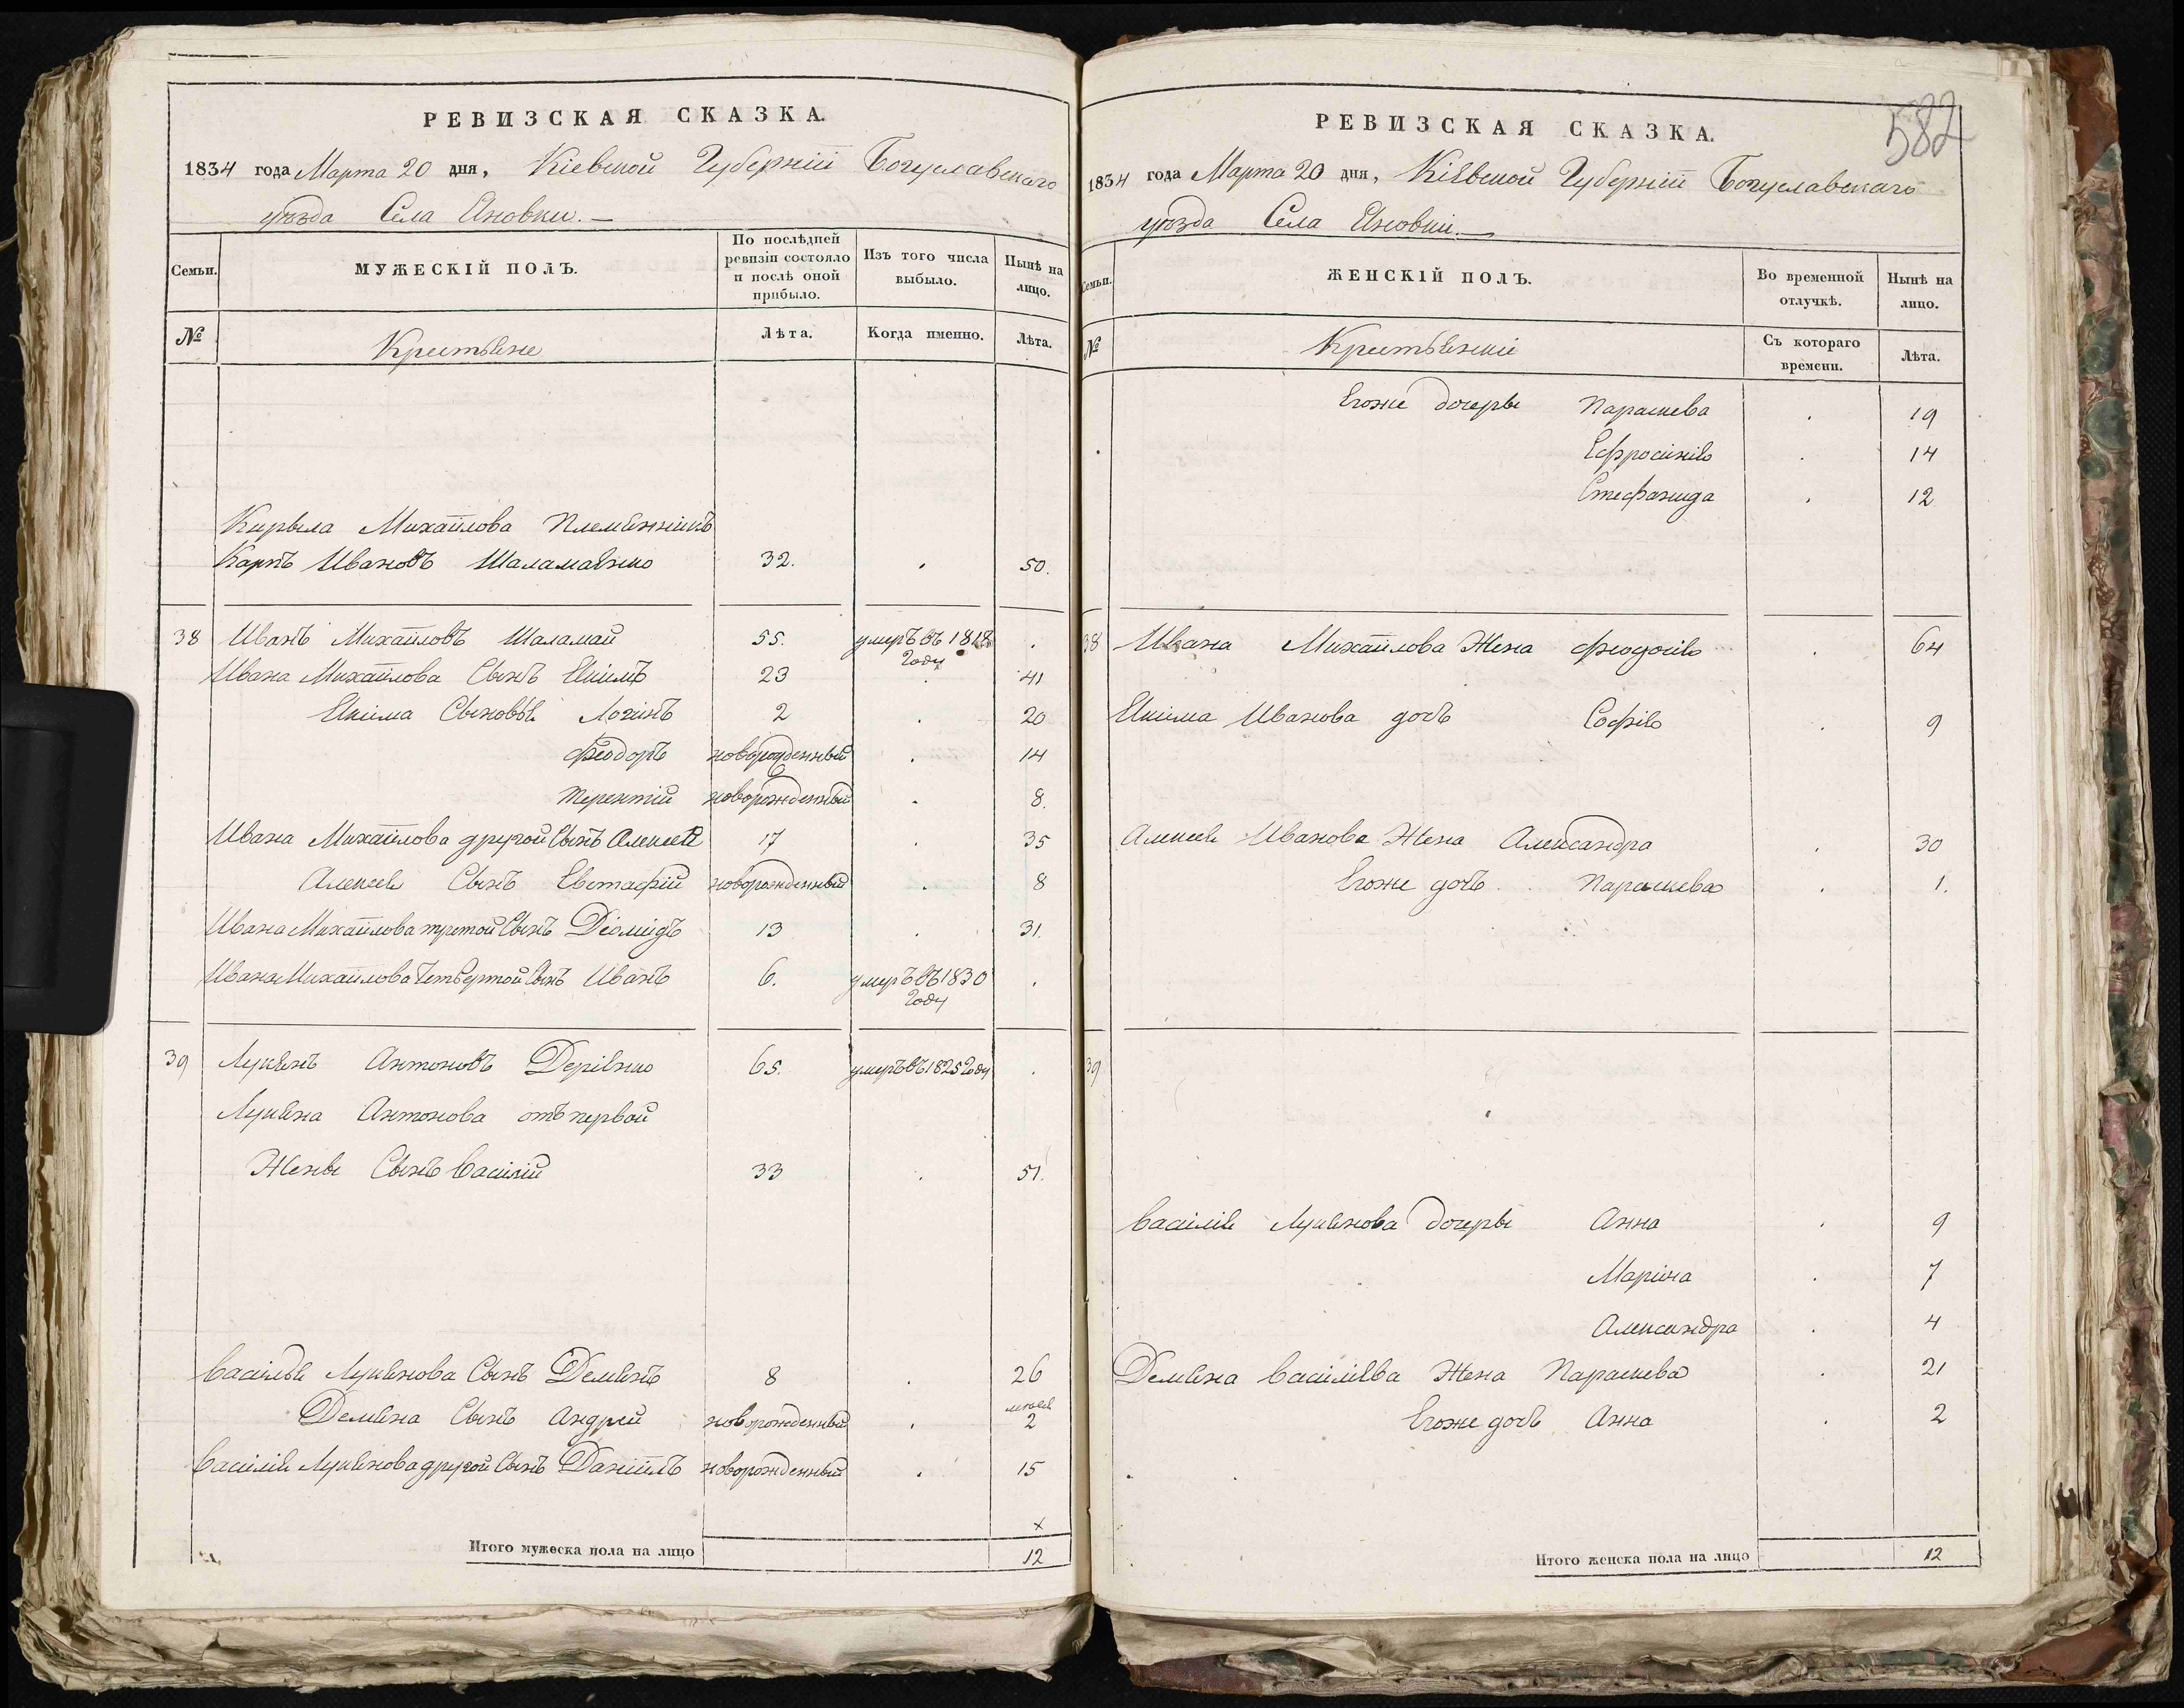 РЕВИЗСКАЯ СКАЗКА.
1834 года Марта 20 дня, Кіевской Губерніи Богуславскаго
уѣзда Села Яновки.—
Семьи. МУЖЕСКІЙ ПОЛЪ. По послѣдней ревизіи состояло и послѣ оной прибыло. Изъ того числа выбыло. Нынѣ на лицо.
№ Крестьяне Лѣта. Когда именно. Лѣта.
Кирыла Михайлова Племянникъ
Карпъ Ивановъ Шаламаенко 32. . 50.
38 Иванъ Михайловъ Шаламай 55. умеръ въ 1818 году .
Ивана Михайлова Сынъ Якимъ 23 . 41
Якима Сыновья Логинъ 2 . 20
Феодоръ новорожденный . 14
Терентій новорожденный . 8.
Ивана Михайлова другой Сынъ Алексей 17 . 35
Алексея Сынъ Евстафій новорожденный . 8
Ивана Михайлова третой Сынъ Діомидъ 13 . 31.
Ивана Михайлова Четвертой Сынъ Иванъ 6. умеръ въ 1830 году .
39 Лукянъ Антоновъ Деріенко 65. умеръ въ 1825 году .
Лукяна Антонова отъ первой
Жены Сынъ Василій 33 . 51.
Василья Лукянова Сынъ Демянъ 8 . 26
Демяна Сынъ Андрей новорожденный . 2
Василія Лукянова другой Сынъ Даніилъ новорожденный . 15
×
Итого мужеска пола на лицо 12
582
РЕВИЗСКАЯ СКАЗКА.
1834 года Марта 20 дня, Кіевской Губерніи Богуславскаго
уѣзда Села Яновки.—
Семьи. ЖЕНСКІЙ ПОЛЪ. Во временной отлучкѣ. Нынѣ на лицо.
№ Крестьянки Съ котораго времени. Лѣта.
Егоже дочеры Параскева . 19
Ефросинія . 14
Стефанида . 12
38 Ивана Михайлова Жена Феодосія . 64
Якима Иванова дочь Софія . 9
Алексея Иванова Жена Александра . 30
Егоже дочь Параскева . 1.
39
Василія Лукянова дочеры Анна . 9
Марина . 7
Александра . 4
Демяна Василіева Жена Параскева . 21
Егоже дочь Анна . 2
Итого женска пола на лицо 12